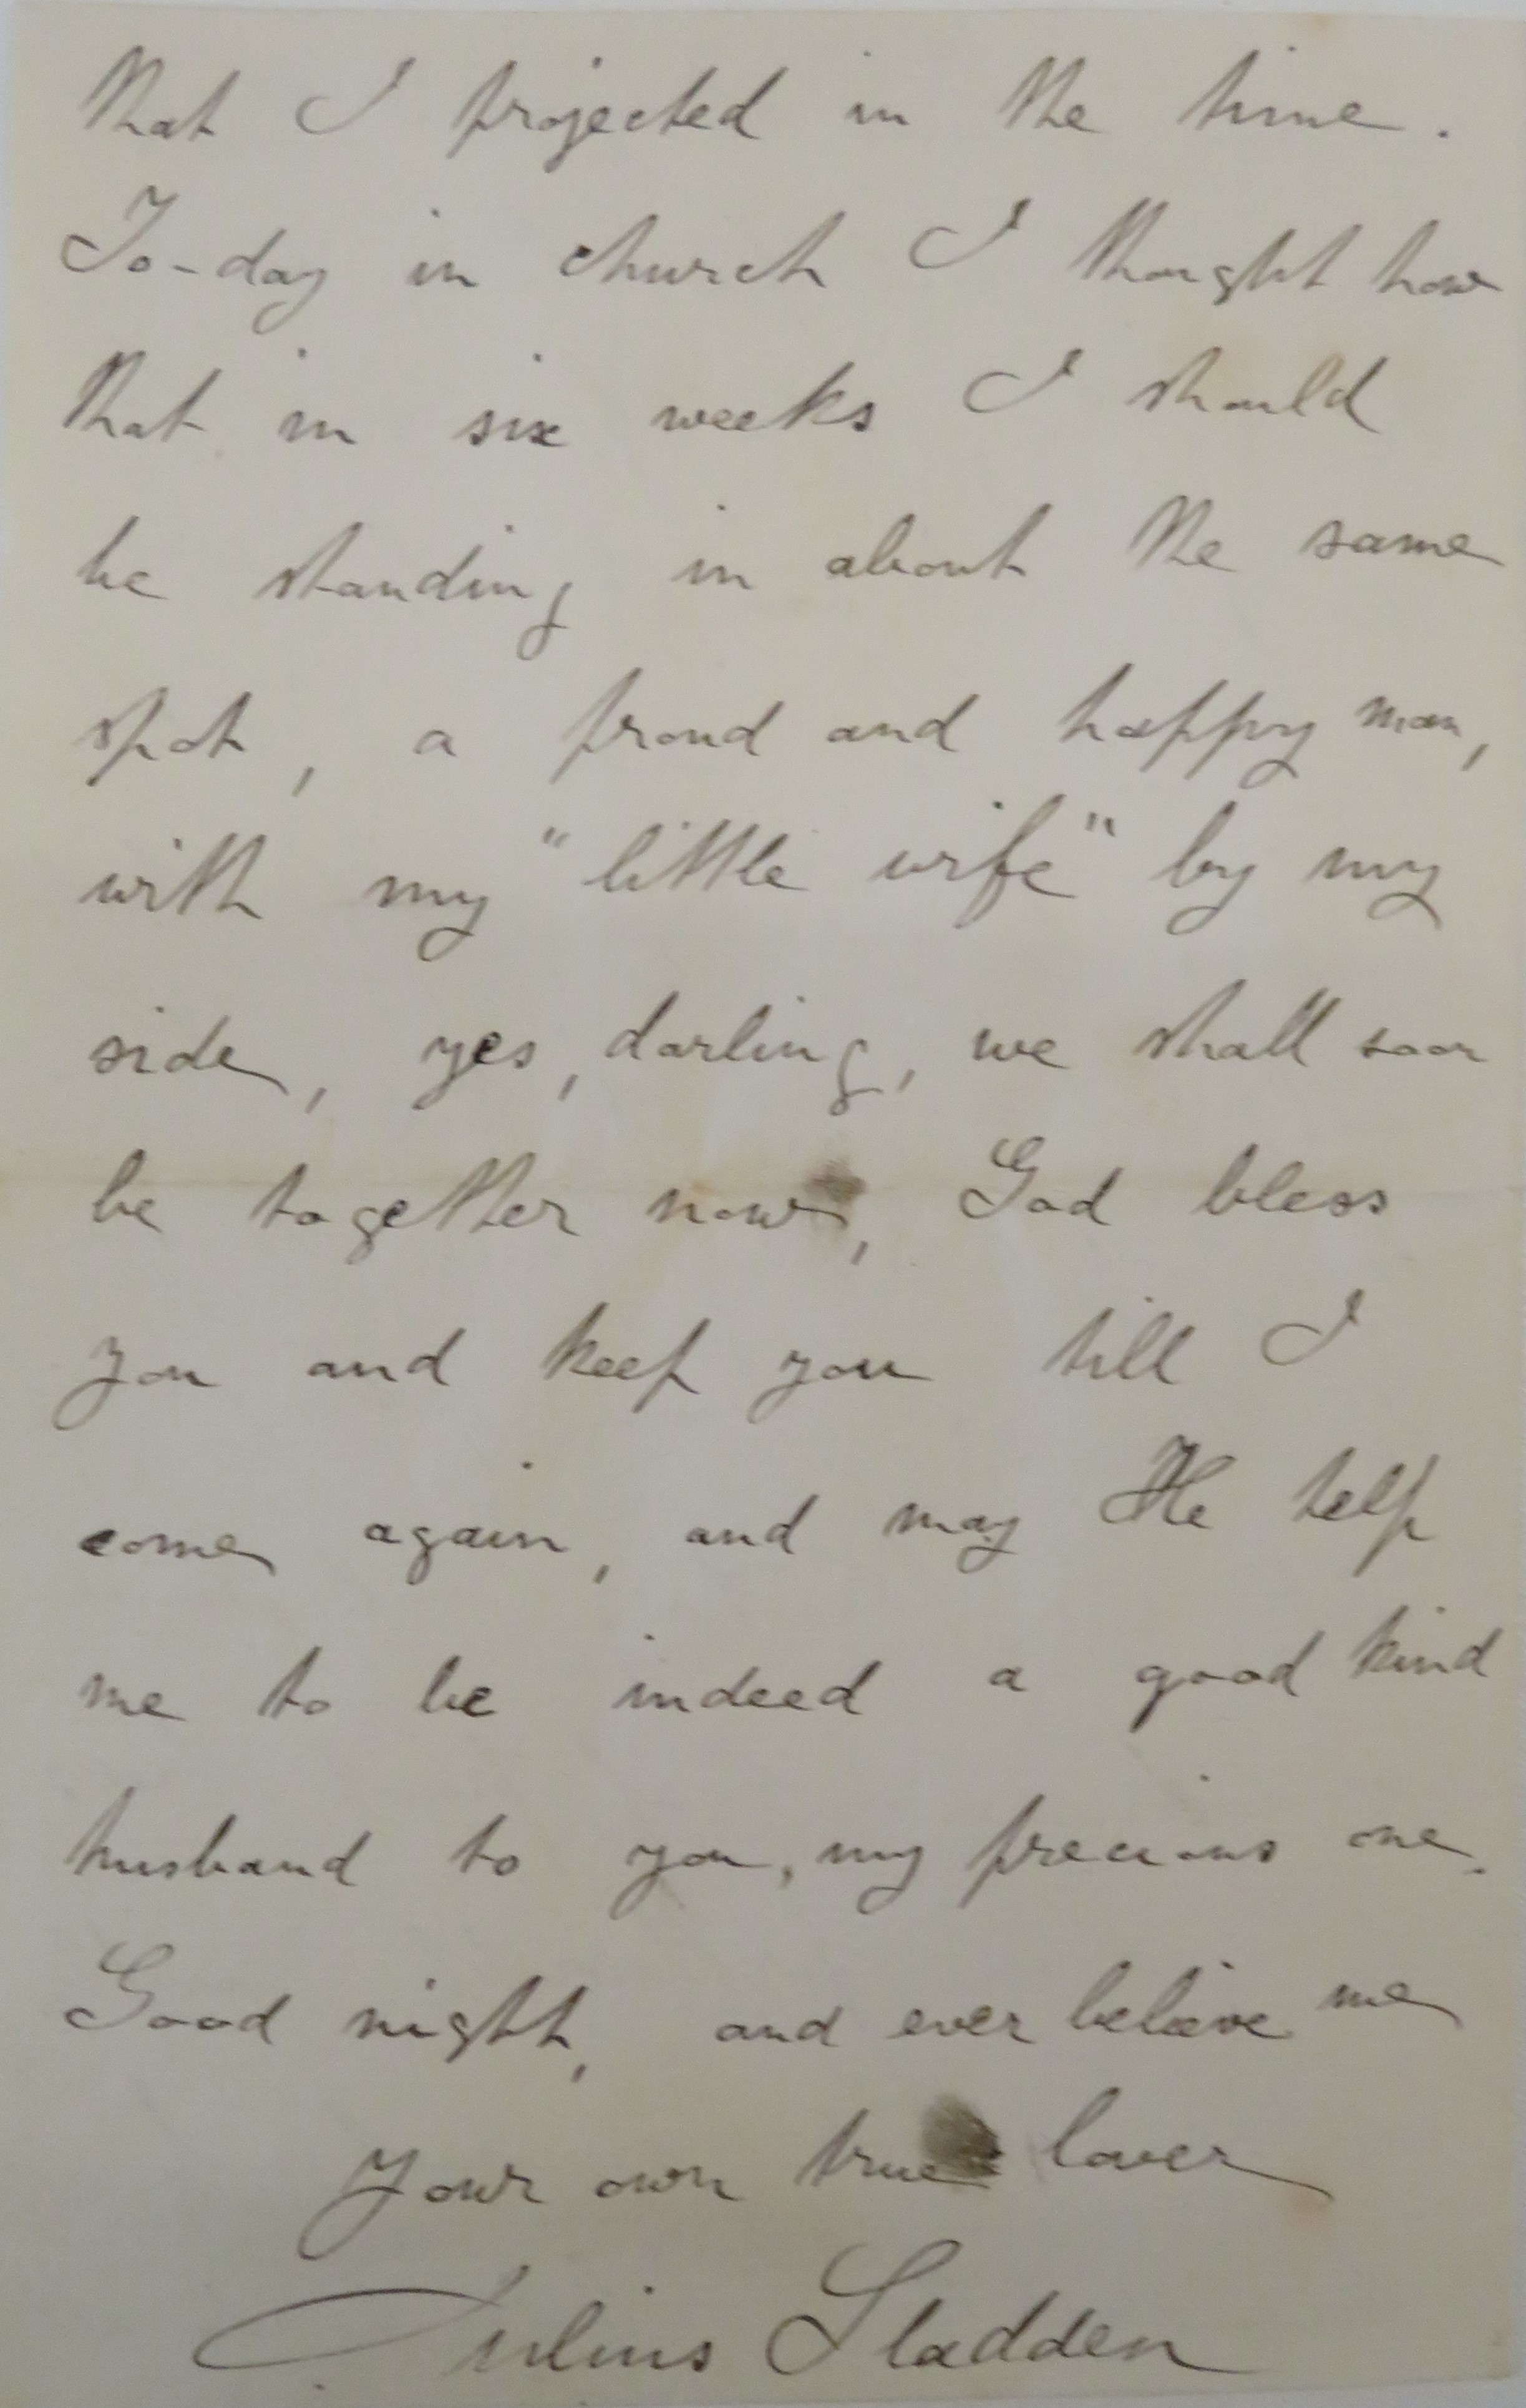 that I projected in the time.
To-day in church I thought how
that in six weeks I should
be standing in about the same
spot, a proud and happy man,
with my "little wife" by my
side, yes, darling, we shall soon
be together now, God bless
you and keep you till I
come again, and may He help
me to be indeed a good kind
husband to you, my precious one.
Good night, and ever believe me
Your own true lover
Julius Sladden